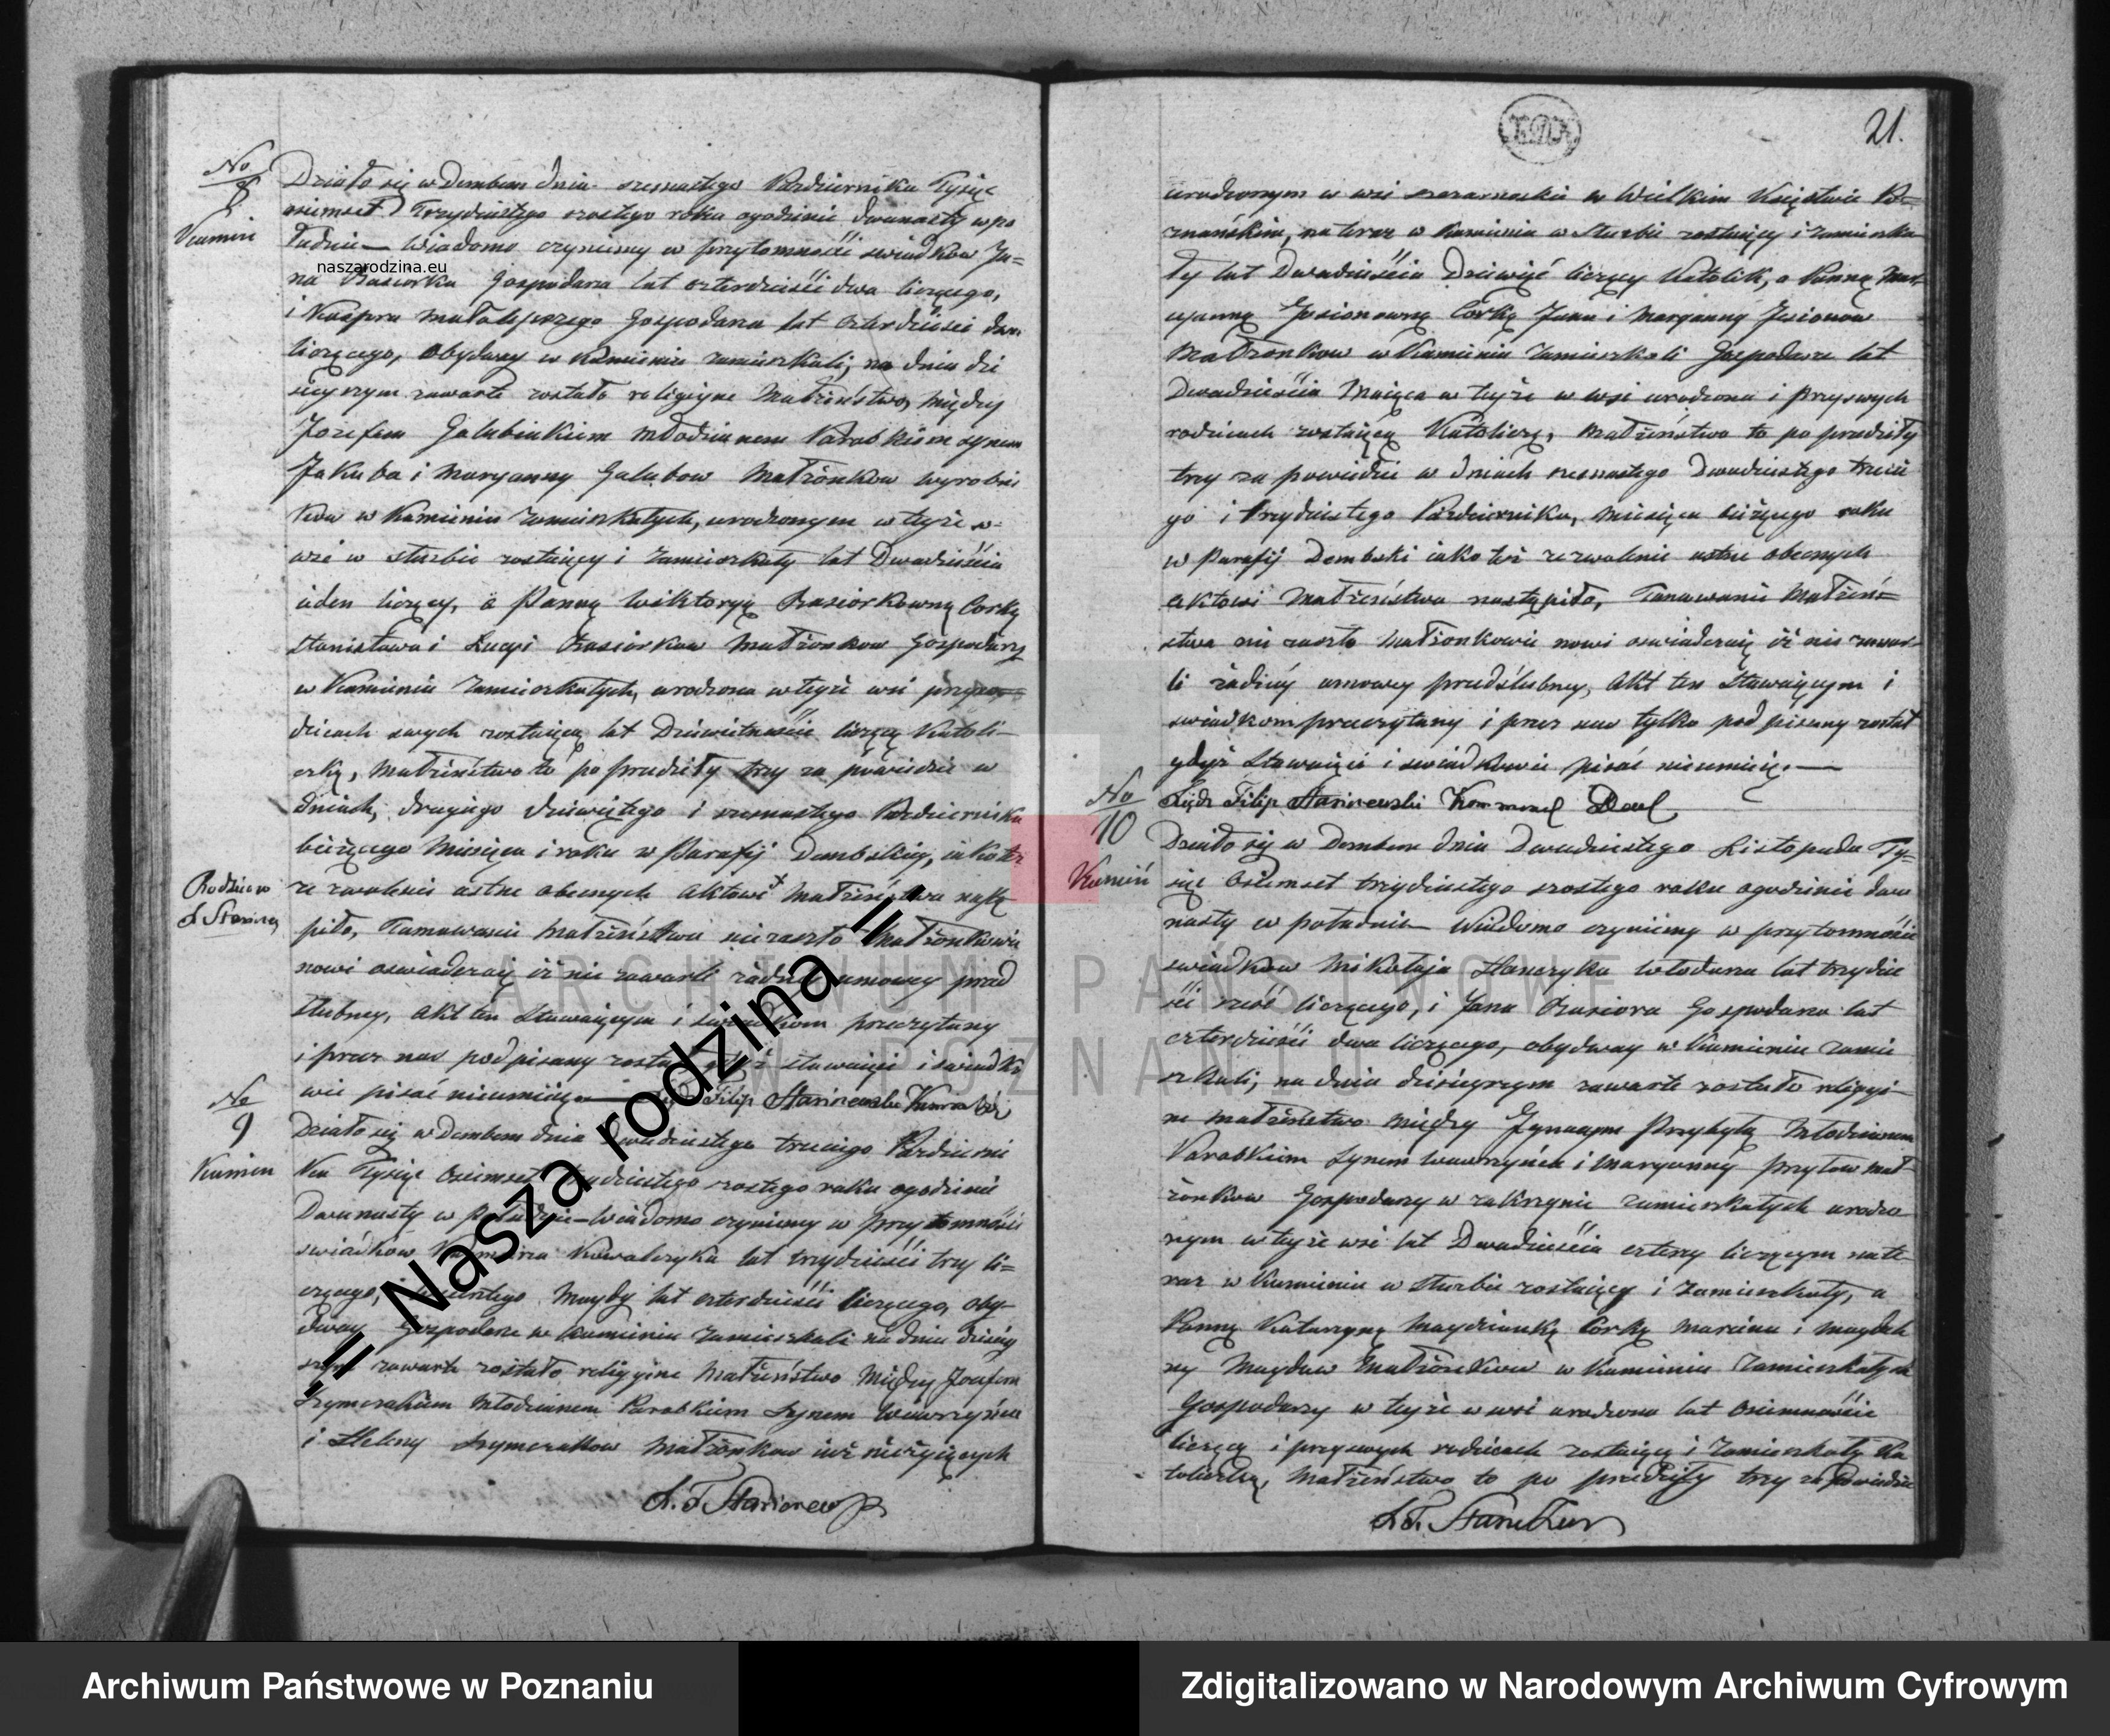 No
8
Kamień
Działo się w Dembem dnia szesnastego Października Tysiąc
osiemset Trzydziestego szostego roku ogodzinie dwunasty wpo
łudnie Wiadomo czyniemy w przytomności swiadkow Ja=
naszarodzina.eu
na Gospodarza lat czterdzieści dwa liczącego,
i Kaspra Małolepszego Gospodarza lat czterdziesci dwa
liczącego, obydwoy w Kamieniu zamieszkali, na dniu dzi
sieyszym zawarte zostało religiyne Małżeństwo, między
Jozefem Galubiakiem Młodzianem Parobkiem synem
Jakuba i Maryanny Galubow Małżonkow wyrobni
kow w Kamieniu zamieszkałych, urodzonym w teyże w-
wsi w służbie zostaiący i zamieszkały lat Dwadzieścia
ieden liczący, a Panną Wiktoryą Corką
Stanisława i Łucyi Małżonkow Gospodarzy
w Kamieniu zamieszkałych, urodzona w teyże wsi
dzicach swych zostaiącą lat Dziewietnaście liczącą Katoli-
czką, Małżeństwo to poprzedziły trzy zapowiedzie w
dniach, drugiego dziewiątego i szesnastego Października
bieżącego Miesiąca i roku w Parafij Dembskiey, iako też
Rodzicow
ze zwolenie ustne obecnych Aktowi Małżeństwa nastą
piło, Tamowanie Małżeństwa nie zaszło Małżonkowie
nowi oswiadczaią iż nie zawarli żadney umowy przed
ślubney, Akt ten Stawaiącym i swiadkom przeczytany
i przez nas podpisany został gdyż stawaiący i swiadko
wie pisać nieumieią. Filip Starczewski
No
9
Kamien
Działo się w Dembem dnia Dwudziestego trzeciego Październi
ka Tysiąc Osiemset Trzydziestego szostego roku ogodzinie
Dwunasty w południe Wiadomo czyniemy w przytomności
swiadków Kowalczyka lat trzydzieści trzy li=
czącego, i Maydy lat czterdzieści liczącego, oby-
dway Gospodarze w Kamieniu zamieszkali na dniu dzisiey
szym zawarte zostało religiyne Małżeństwo Między Jozefem
Szymczakiem Młodzianem Parobkiem Synem Wawrzyńca
i Heleny Szymczakow Małżonkow iuż nieżyiących
" Nasza rodzina "
21.
urodzonym w wsi w Wielkim Xięstwie Po=
znańskim, na teraz w Kamieniu w Służbie zostaiący i zamieszka
ły lat Dwadzieścia Dziewięć liczący Katolik, a Panną Mar-
cyanną Jasionowną Corką Jana i Maryanny Jasionow
Małżonkow w Kamieniu zamieszkali Gospodarze lat
Dwadzieścia Maiąca w teyże w wsi urodzona i przyswych
rodzicach zostaiącą Katoliczką, Małżeństwo to poprzedziły
trzy zapowiedzie w dniach szesnastego Dwudziestego trzecie
go i trzydziestego Października, Miesiąca bieżącego roku
w Parafij Dembski iako też zezwolenie ustne obecnych
aktowi Małżeństwa nastąpiło, Tamowanie Małżeń=
stwa nie zaszło Małżonkowie nowi oswiadczaią iż nie zawar-
li żadney umowy przedślubney, Akt ten Stawaiącym i
swiadkom przeczytany i przez nas tylko podpisany został
gdyż Stawaiący i swiadkowie pisać nieumieią.
Xiądz Filip Starczewski
No
10
Kamień
Działo się w Dembem dnia Dwudziestego Listopada Ty-
siąc Osiemset trzydziestego szostego roku ogodzinie dwu
nasty w południe Wiadomo czyniemy w przytomności
swiadkow Mikołaja Włodarza lat trzydzie
ści sześć liczącego, i Jana Gospodarza lat
czterdzieści dwa liczącego, obydway w Kamieniu zamie
szkali, na dniu dzisieyszym zawarte zostało religiy-
ne małżeństwo między Ignacym Przybyłą Młodzianem
Parobkiem Synem Wawrzyńca i Maryanny Przybyłow Mał-
żonkow Gospodarzy w zamieszkałych urodzo
nym w teyże wsi lat Dwadzieścia cztery liczącym na te-
raz w Kamieniu w służbie zostaiący i zamieszkały, a
Panną Katarzyną Maydzianką Corką Marcina i Magdale
ny Maydow Małżonkow w Kamieniu zamieszkałych
Gospodarzy w teyże w wsi urodzona lat Osiemnaście
liczącą i przyswych rodzicach zostaiącą i zamieszkałą Ka
toliczką, Małżeństwo to poprzedziły trzy zapowiedzie
ARCHIWUM PAŃSTWOWE
W POZNANIU
Archiwum Państwowe w Poznaniu
Zdigitalizowano w Narodowym Archiwum Cyfrowym